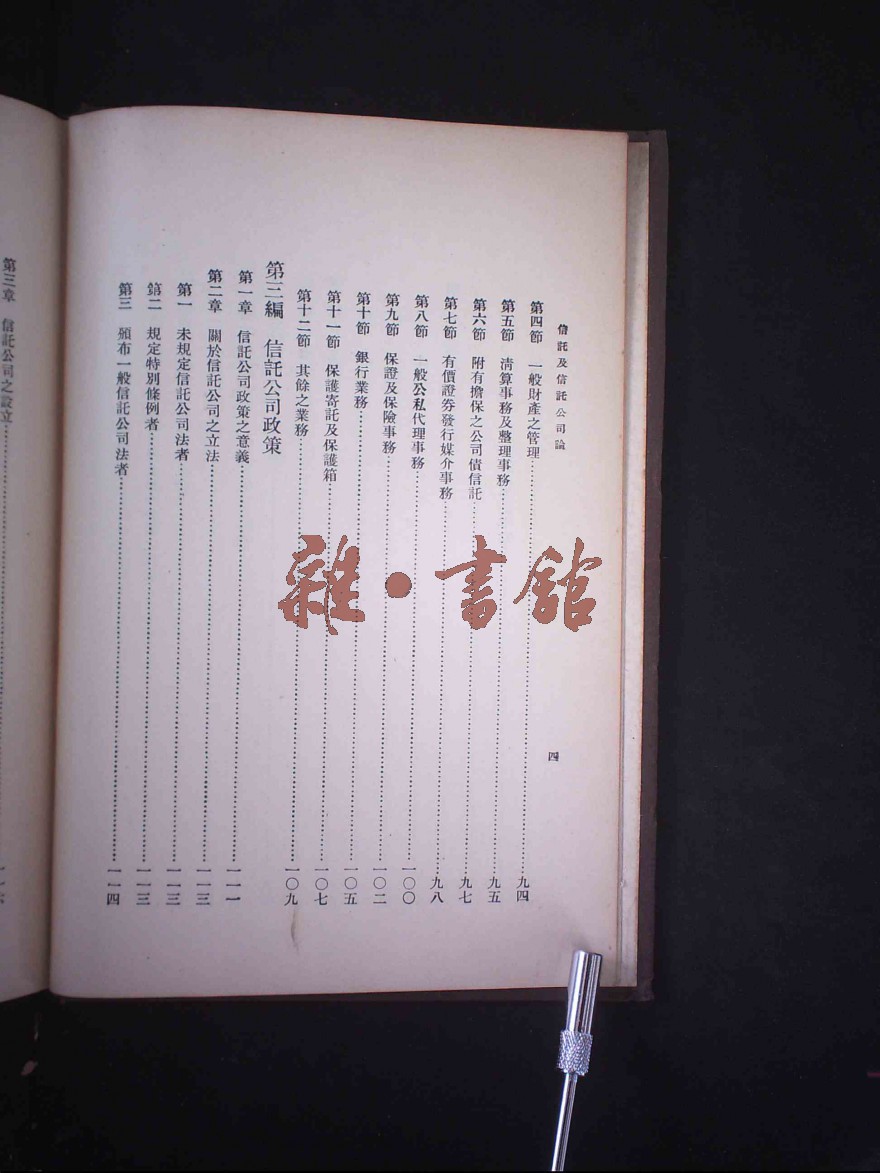 信託及信託公司論
四
第四節 一般財產之管理……九四
第五節 清算事務及整理事務……九五
第六節 附有擔保之公司債信託……九七
第七節 有價證券發行媒介事務……九八
第八節 一般公私代理事務……一〇〇
第九節 保證及保險事務……一〇二
第十節 銀行業務……一〇五
第十一節 保護寄託及保護箱……一〇七
第十二節 其餘之業務……一〇九
第三編 信託公司政策
第一章 信託公司政策之意義……一一一
第二章 關於信託公司之立法……一一三
第一 未規定信託公司法者……一一三
第二 規定特別條例者……一一三
第三 頒布一般信託公司法者……一一四
第三章 信託公司之設立……一一六
雜·書館